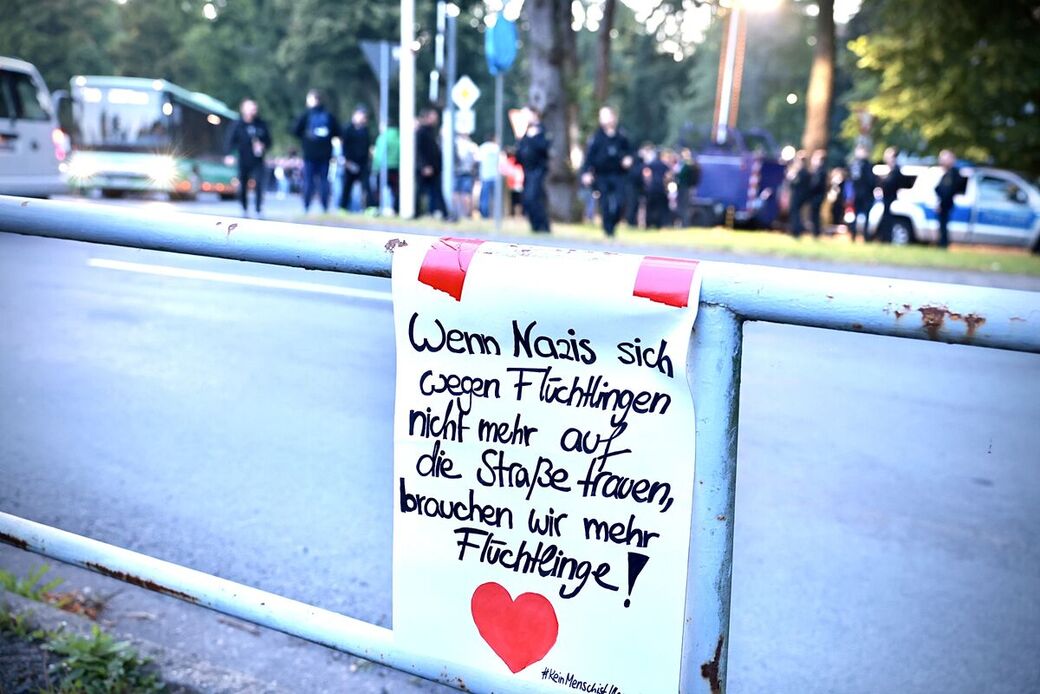 Wenn Nazis sich
wegen Flüchtlingen
nicht mehr auf
die Straße trauen,
brauchen wir mehr
Flüchtlinge!
#KeinMenschist